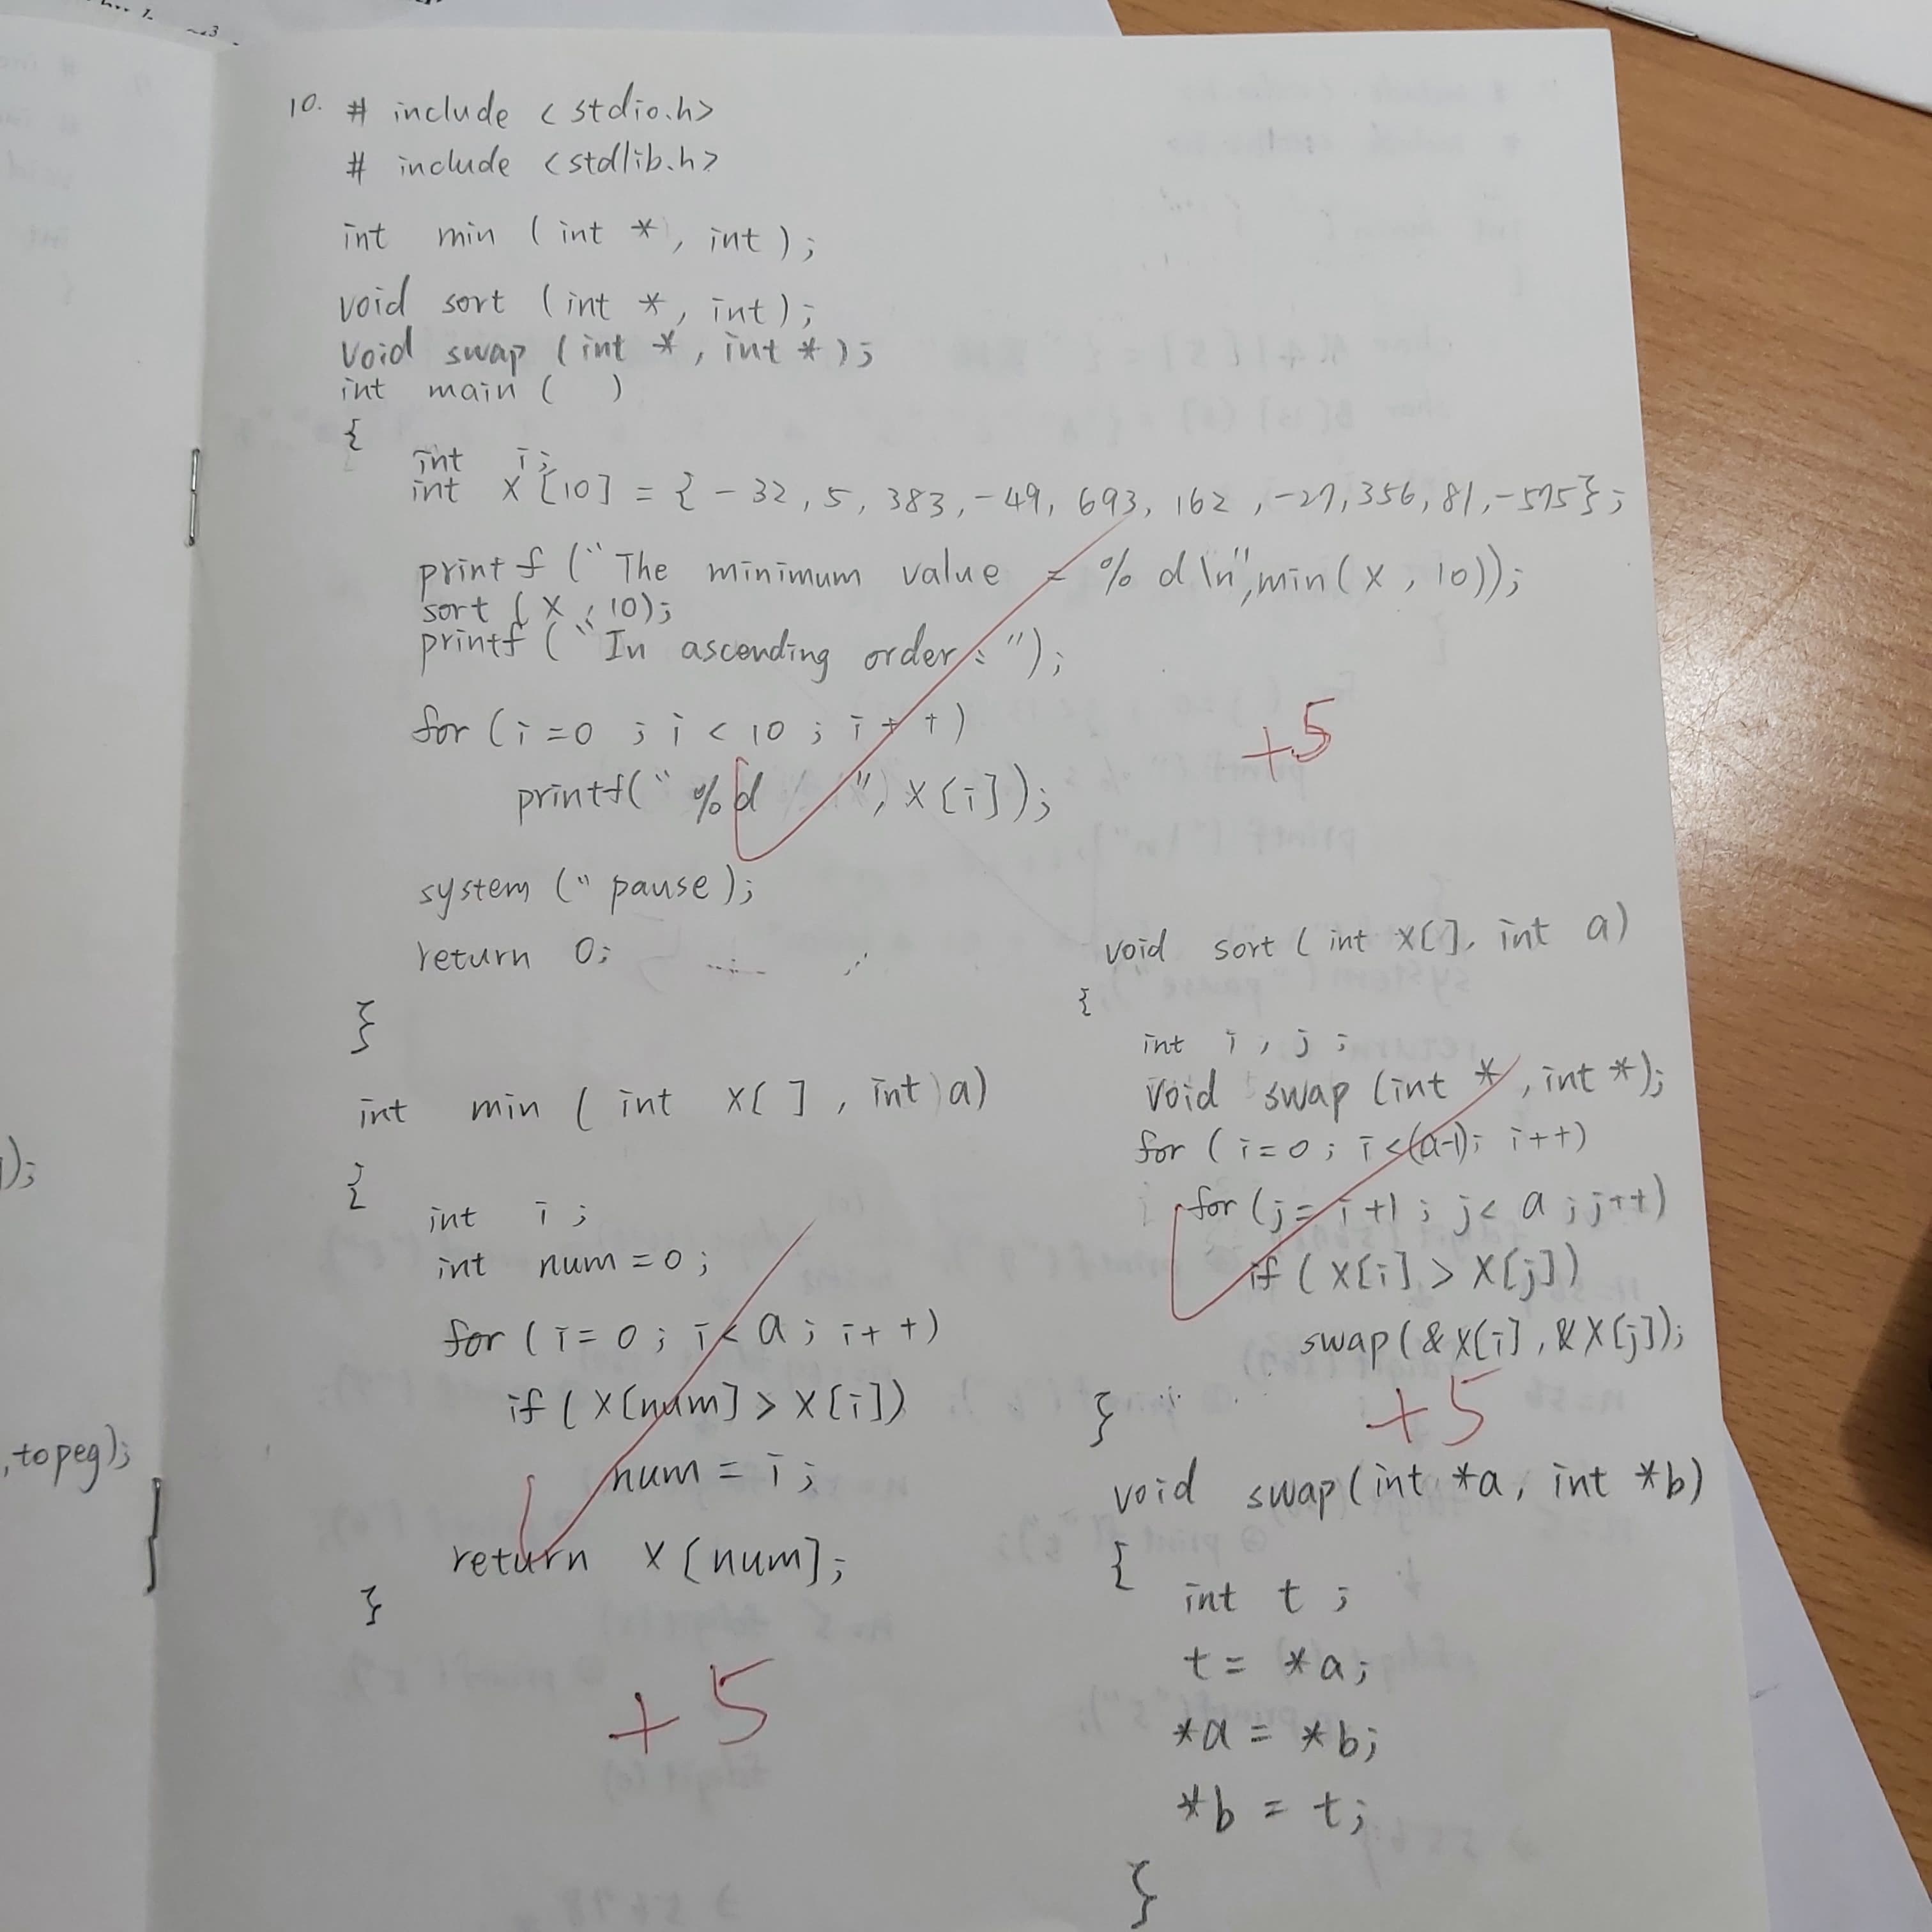 10. # include <stdio.h>
# include <stdlib.h>
int min (int *, int);
void sort (int *, int);
void swap (int *, int *);
int main ( )
{
int i;
int X[10] = {-32, 5, 383, -49, 693, 162, -27, 356, 81, -575};
printf ("The minimum value = %d\n", min(X, 10));
sort (X, 10);
printf ("In ascending order: ");
for (i=0 ; i < 10 ; i++)
printf(" %d ", X[i]);
+5
system ("pause);
return 0;
}
int min ( int X[ ], int a)
{
int i ;
int num = 0;
for (i = 0 ; i < a ; i++)
if (X[num] > X[i])
num = i ;
return X[num];
}
+5
void sort (int X[], int a)
{
int i, j ;
void swap (int *, int *);
for (i=0; i<(a-1); i++)
for (j= i+1 ; j< a ; j++)
if (X[i] > X[j])
swap(&X[i], &X[j]);
}
+5
void swap(int *a, int *b)
{
int t ;
t = *a;
*a = *b;
*b = t;
}
);
, topeg);
}